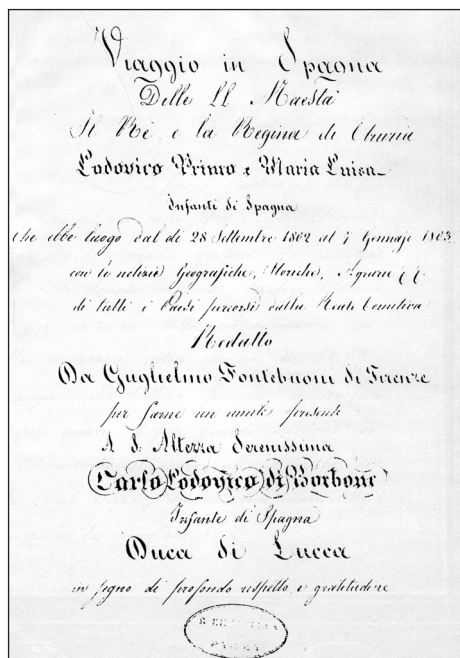 Viaggio in Spagna
Delle LL Maestà
Il Rè, e la Regina di Etruria
Lodovico Primo e Maria Luisa
Infanti di Spagna
Che ebbe luogo dal di 28 Settembre 1802 al 7 Gennajo 1803
con le notizie Geografiche, Storiche, Agrarie
di tutti i Paesi percorsi dalla Reale Comitiva
Redatto
Da Guglielmo Fontebuoni di Firenze
per farne un umile presente
A S. Altezza Serenissima
Carlo Lodovico di Borbone
Infante di Spagna
Duca di Lucca
in segno di profondo rispetto, e gratitudine
PARMA